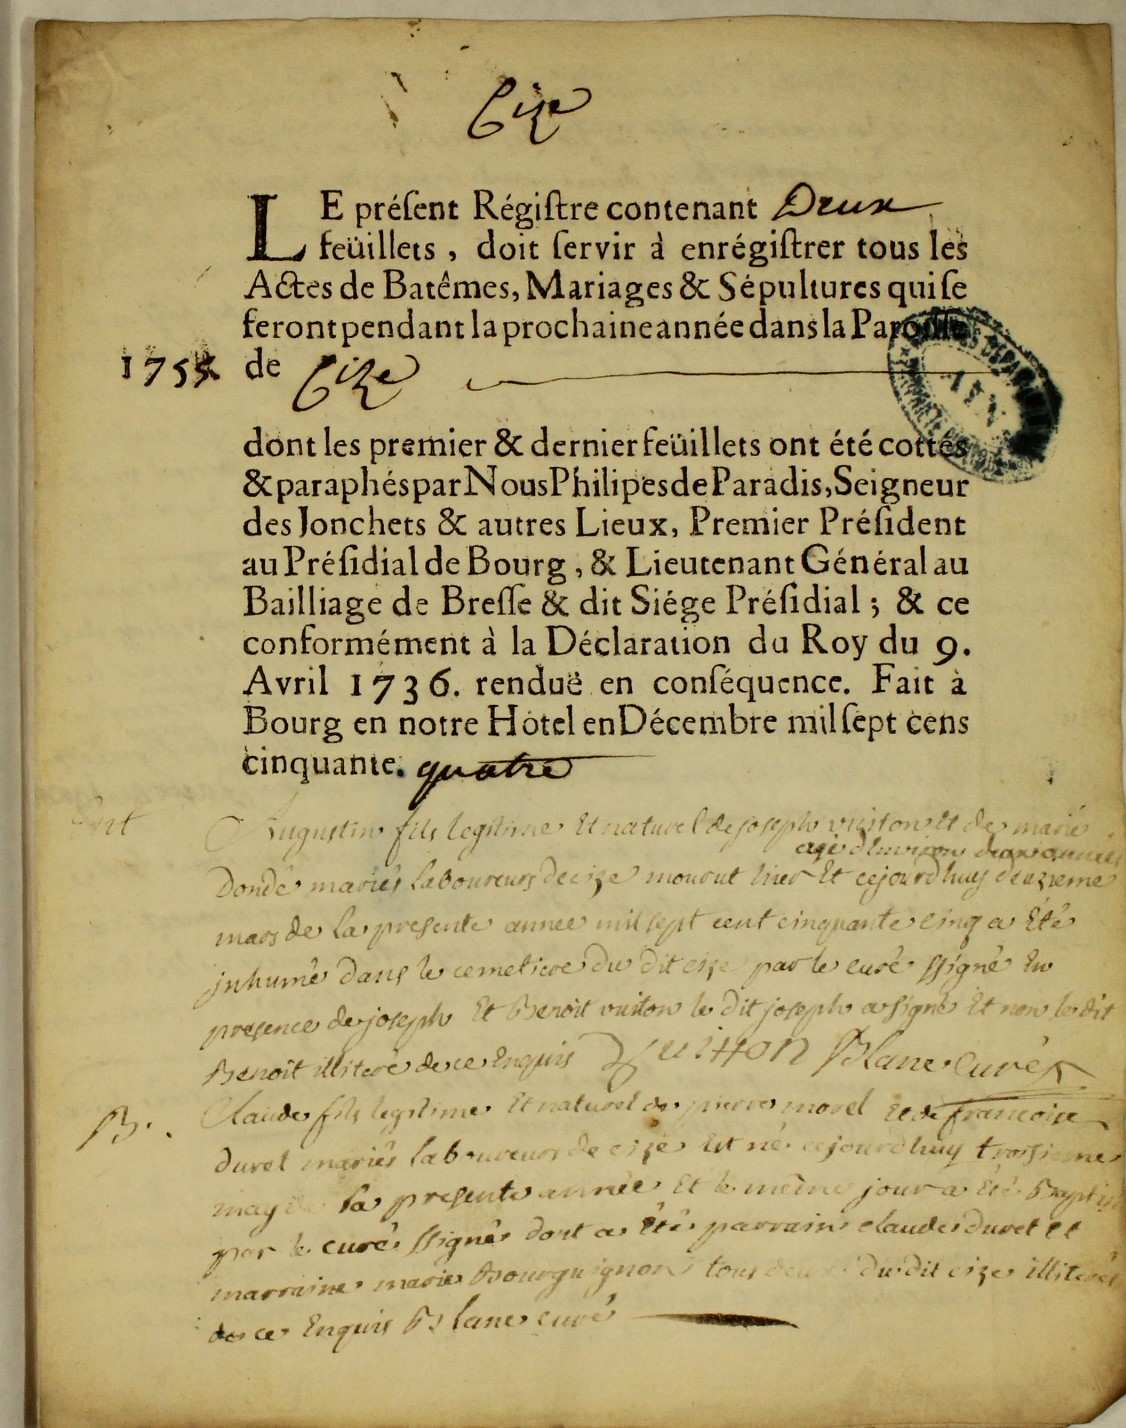 Cize
LE préſent Régiſtre contenant Deux
feüillets, doit ſervir à enrégiſtrer tous les
Actes de Batêmes, Mariages & Sépultures qui ſe
feront pendant la prochaine année dans la Paroiſſe
1755 de Cize
dont les premier & dernier feüillets ont été cottés
& paraphés par Nous Philipes de Paradis, Seigneur
des Jonchets & autres Lieux, Premier Préſident
au Préſidial de Bourg, & Lieutenant Général au
Bailliage de Breſſe & dit Siége Préſidial; & ce
conformément à la Déclaration du Roy du 9.
Avril 1736. renduë en conſéquence. Fait à
Bourg en notre Hôtel en Décembre mil ſept cens
cinquante. quatre
Augustin fils legitime Et naturel de joseph vuiton Et de marie
agé d'Environ deux années
Donde mariés laboureurs de cize mourut hier Et cejourdhuy deuzieme
mars de la presente annee mil sept cent cinquante cinq a Eté
inhumé dans le cemetiere du dit cize par le curé ssigné En
presence de joseph Et Benoit vuiton le dit joseph a signé Et non le dit
Benoit illiteré de ce Enquis Vuitton Blanc curé
B. Claude fils legitime Et naturel de pierre morel Et de francoise
duret mariés laboureurs de cize Est né cejourdhuy troisieme
may de la presente année Et le même jour a Eté Baptisé
par le curé ssigné dont a Eté parrain claude duret Et
marraine marie Bourguignon tous deux du dit cize illiterés
de ce Enquis Blanc curé